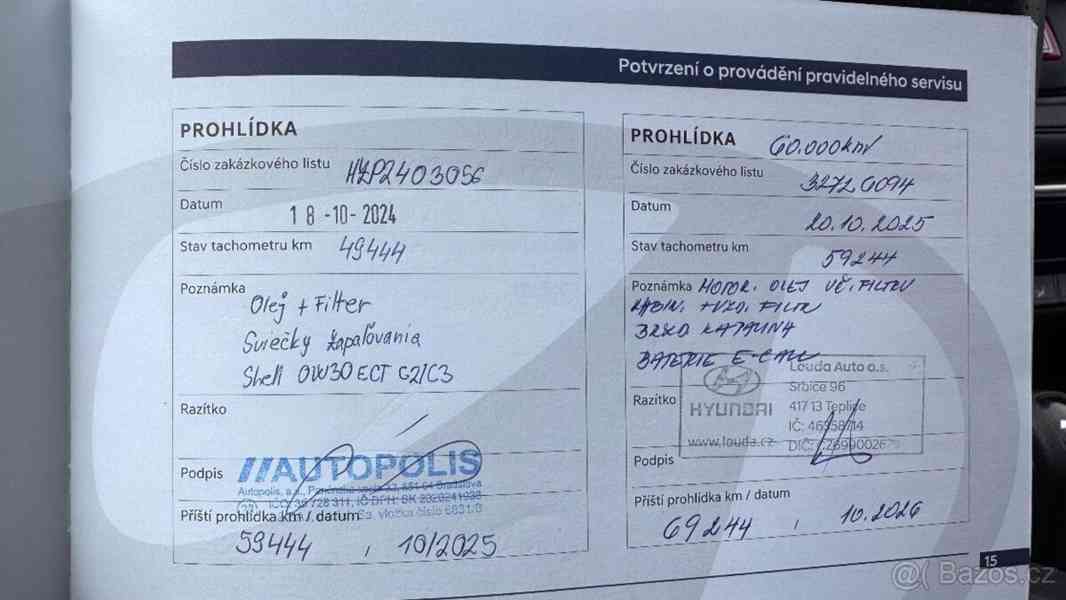 Potvrzení o provádění pravidelného servisu
PROHLÍDKA
Číslo zakázkového listu HZP2403056
Datum 18-10-2024
Stav tachometru km 49444
Poznámka
Olej + Filter
Sviečky zapaľovania
Shell 0W30 ECT C2/C3
Razítko
Podpis
//AUTOPOLIS
Autopolis, a.s.,
Příští prohlídka km / datum
59444 , 10/2025
PROHLÍDKA 60.000km
Číslo zakázkového listu 32720094
Datum 20.10.2025
Stav tachometru km 59244
Poznámka MOTOR. OLEJ VČ. FILTRU
KABIN. + VZD. FILTR
BRZD KAPALINA
BATERIE E-CALL
Razítko
HYUNDAI
www.louda.cz
Louda Auto a.s.
Srbice 96
417 13 Teplice
IČ:
DIČ:
Podpis
Příští prohlídka km / datum
69244 , 10.2026
15
@( Bazos.cz